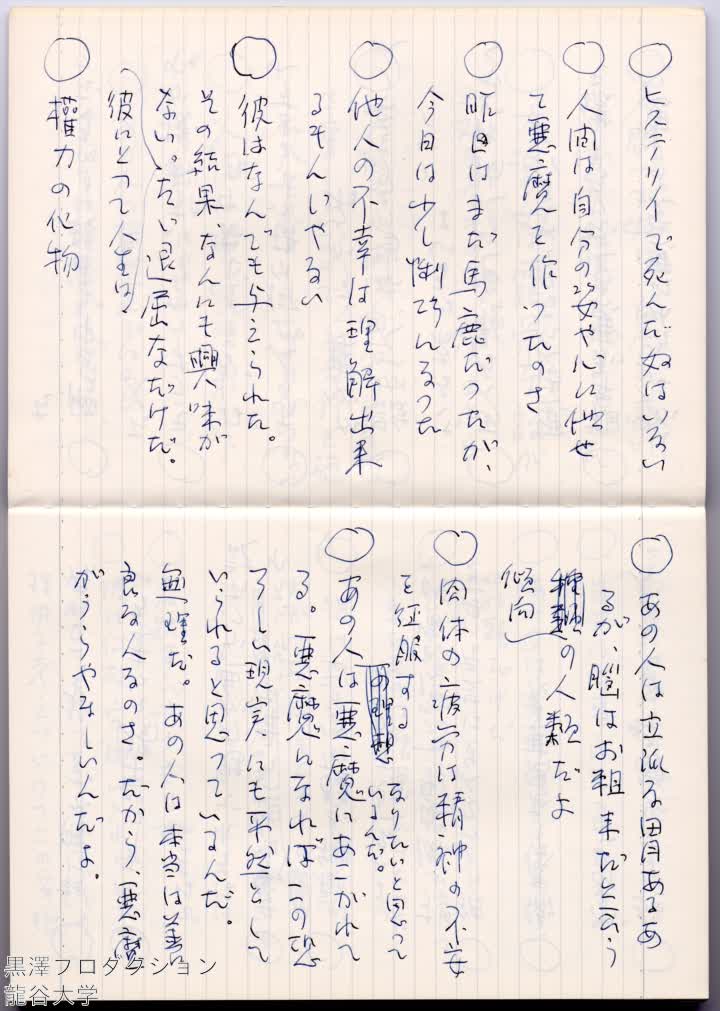 ○ ヒステリイで死んだ奴はいない
○ 人間は自分の姿や心に似せ
て悪魔を作ったのさ
○ 昨日はまだ馬鹿だったが、
今日は少し悧巧になった
○ 他人の不幸は理解出来
るもんじやない
○ 彼はなんでも与えられた。
その結果、なんにも興味が
ない。たゞ退屈なだけだ。
(彼にとって人生は)
○ 権力の化物
○ あの人は立派な胃あるあ
るが、脳はお粗末だと云う
種類の人類だよ
傾向
○ 肉体の疲労は精神の不安
を征服する
○ あの人は悪魔にあこがれて
の理想
なりたいと思って
いるんだ。
る。悪魔になればこの恐
ろしい現実にも平然として
いられると思っているんだ。
無理だ。あの人は本当は善
良なんるのさ。だから、悪魔
がうらやましいんだよ。
黒澤プロダクション
龍谷大学